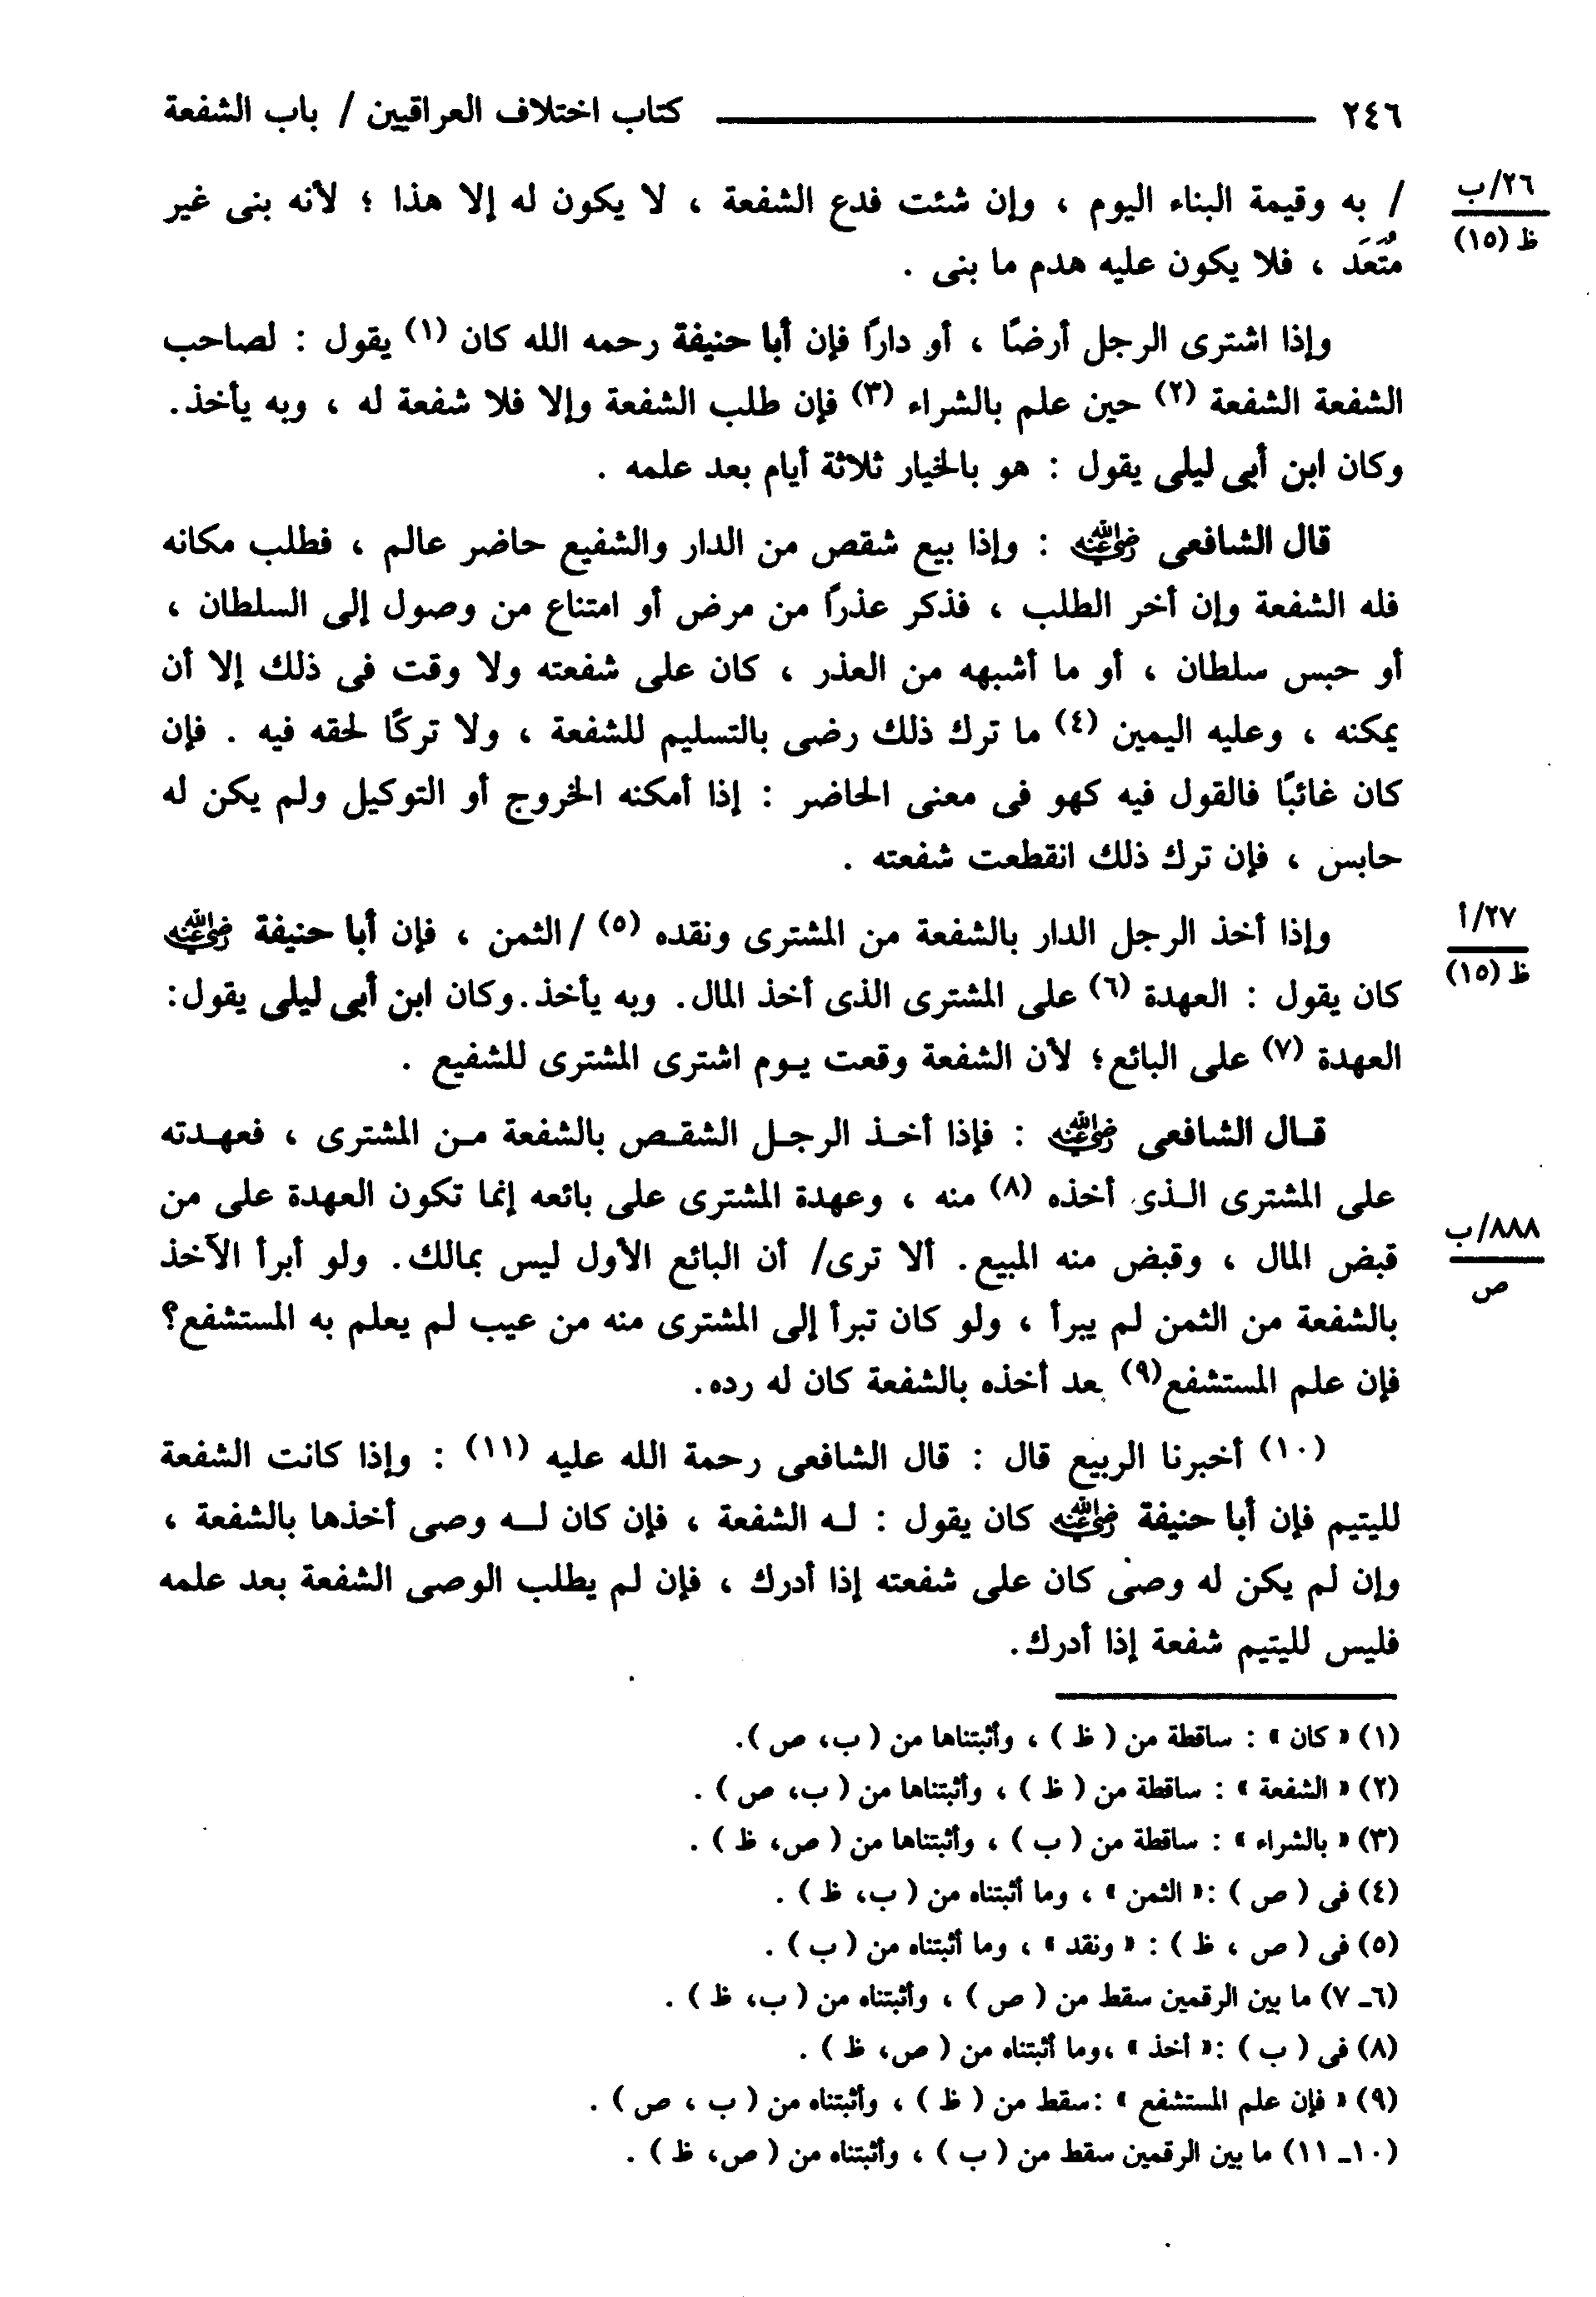 ٢٤٦ ــــــــــــــــــــ كتاب اختلاف العراقيين / باب الشفعة
٢٦/ب
ظ (١٥)
/ به وقيمة البناء اليوم ، وإن شئت فدع الشفعة ، لا يكون له إلا هذا ؛ لأنه بنى غير
مُتَعَد ، فلا يكون عليه هدم ما بنى .
وإذا اشترى الرجل أرضًا ، أو دارًا فإن أبا حنيفة رحمه الله كان (١) يقول : لصاحب
الشفعة الشفعة (٢) حين علم بالشراء (٣) فإن طلب الشفعة وإلا فلا شفعة له ، وبه يأخذ.
وكان ابن أبى ليلى يقول : هو بالخيار ثلاثة أيام بعد علمه .
قال الشافعى رضي الله عنه : وإذا بيع شقص من الدار والشفيع حاضر عالم ، فطلب مكانه
فله الشفعة وإن أخر الطلب ، فذكر عذرًا من مرض أو امتناع من وصول إلى السلطان ،
أو حبس سلطان ، أو ما أشبهه من العذر ، كان على شفعته ولا وقت فى ذلك إلا أن
يمكنه ، وعليه اليمين (٤) ما ترك ذلك رضى بالتسليم للشفعة ، ولا تركًا لحقه فيه . فإن
كان غائبًا فالقول فيه كهو فى معنى الحاضر : إذا أمكنه الخروج أو التوكيل ولم يكن له
حابس ، فإن ترك ذلك انقطعت شفعته .
٢٧/أ
ظ (١٥)
وإذا أخذ الرجل الدار بالشفعة من المشترى ونقده (٥) /الثمن ، فإن أبا حنيفة رضي الله عنه
كان يقول : العهدة (٦) على المشترى الذى أخذ المال. وبه يأخذ.وكان ابن أبى ليلى يقول:
العهدة (٧) على البائع؛ لأن الشفعة وقعت يـوم اشترى المشترى للشفيع .
قـال الشافعى رضي الله عنه : فإذا أخـذ الرجـل الشقـص بالشفعة مـن المشترى ، فعهـدته
على المشترى الـذى أخذه (٨) منه ، وعهدة المشترى على بائعه إنما تكون العهدة على من
٨٨٨/ب
ص
قبض المال ، وقبض منه المبيع. ألا ترى/ أن البائع الأول ليس بمالك. ولو أبرأ الآخذ
بالشفعة من الثمن لم يبرأ ، ولو كان تبرأ إلى المشترى منه من عيب لم يعلم به المستشفع؟
فإن علم المستشفع(٩) بعد أخذه بالشفعة كان له رده.
(١٠) أخبرنا الربيع قال : قال الشافعى رحمة الله عليه (١١) : وإذا كانت الشفعة
لليتيم فإن أبا حنيفة رضي الله عنه كان يقول : لـه الشفعة ، فإن كان لـه وصى أخذها بالشفعة ،
وإن لم يكن له وصى كان على شفعته إذا أدرك ، فإن لم يطلب الوصى الشفعة بعد علمه
فليس لليتيم شفعة إذا أدرك.
(١) « كان » : ساقطة من ( ظ ) ، وأثبتناها من ( ب، ص ).
(٢) « الشفعة » : ساقطة من ( ظ ) ، وأثبتناها من ( ب، ص ) .
(٣) « بالشراء » : ساقطة من ( ب ) ، وأثبتناها من ( ص، ظ ) .
(٤) فى ( ص ) :« الثمن » ، وما أثبتناه من ( ب، ظ ) .
(٥) فى ( ص ، ظ ) : « ونقد » ، وما أثبتناه من ( ب ) .
(٦ـ ٧) ما بين الرقمين سقط من ( ص ) ، وأثبتناه من ( ب، ظ ) .
(٨) فى ( ب ) :« أخذ » ،وما أثبتناه من ( ص، ظ ) .
(٩) « فإن علم المستشفع » :سقط من ( ظ ) ، وأثبتناه من ( ب ، ص ) .
(١٠ـ ١١) ما بين الرقمين سقط من ( ب ) ، وأثبتناه من ( ص، ظ ) .